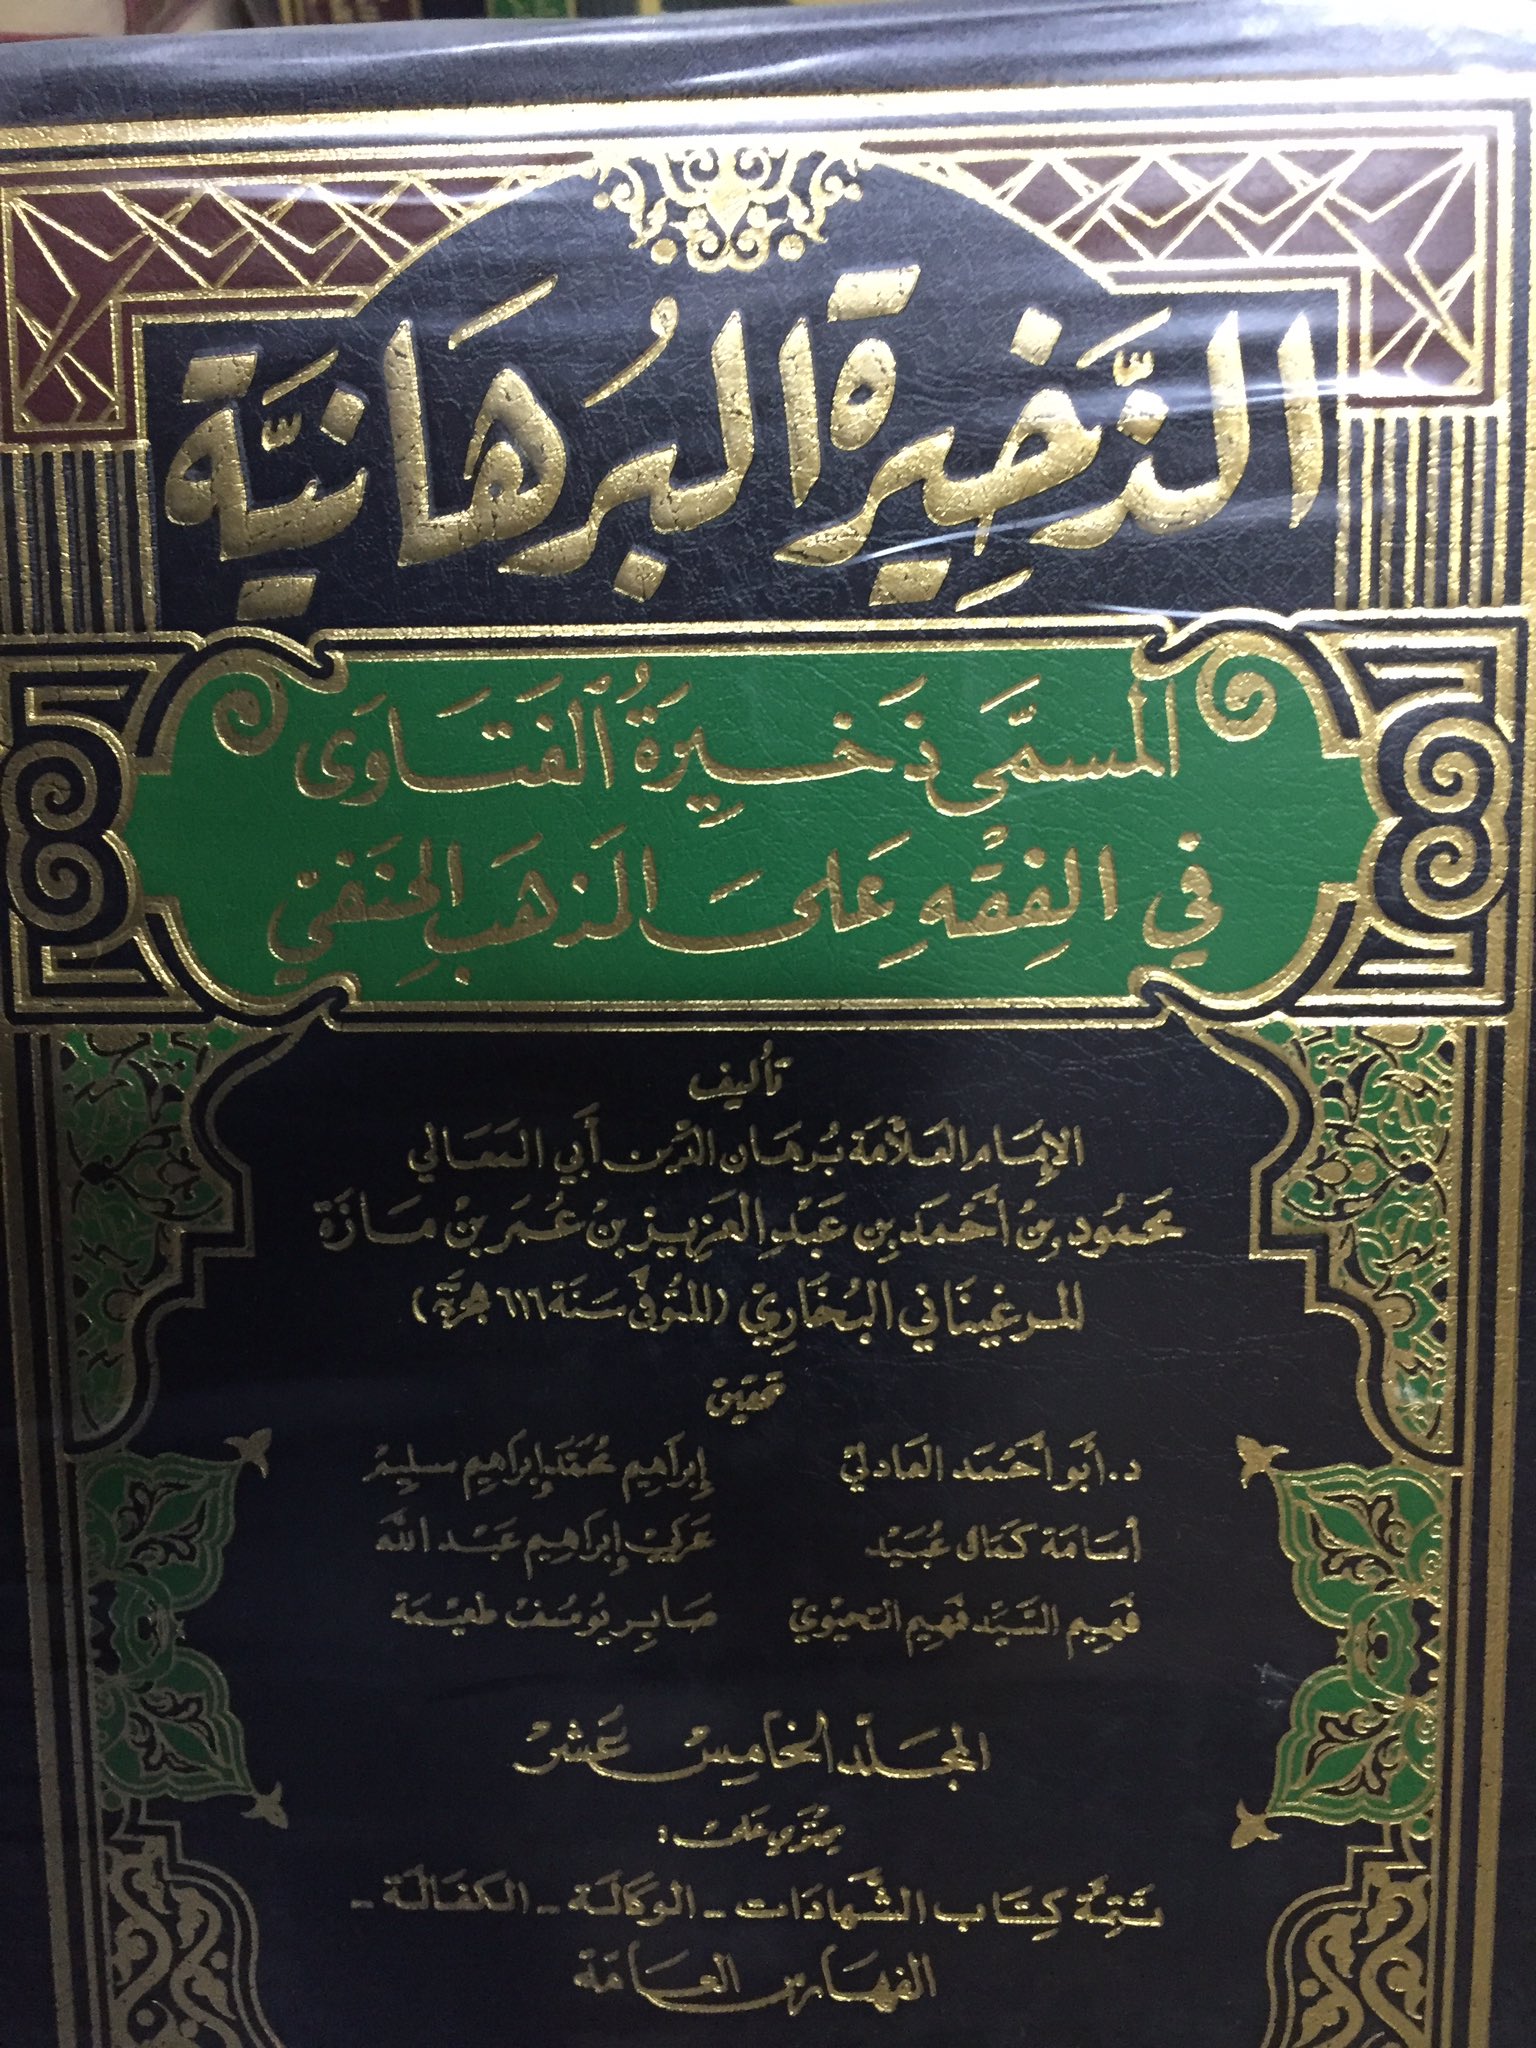 الذَّخِيرَةُ البُرْهَانِيَّة
المسمَّى ذَخِيرَةُ الْفَتَاوَى
فِي الفِقْهِ عَلَى المَذهَبِ الحَنَفيّ
تأليف
الإِمَام العَلَّامَة بُرهَان الدِّين أَبي المَعَالي
مَحمُود بن أَحْمَد بن عَبْد العَزيز بنْ عُمَر بنْ مَازَة
المرغينَاني البُخَاري (المتوفَّى سَنَة ٦١٦ هجريَّة)
تحقيق
د. أبو أحْمَد العَادلي إبرَاهيم محمَّد إبرَاهيم سليم
أسَامَة كمَال عُبَيد عَركي إبرَاهيم عَبْد الله
فَهيم السَّيِّد فَهيم التحيْوي صَابر يُوسُف طعيْمَة
المجَلّد الخَامِسْ عَشرْ
يحْتَوي عَلىْ:
تَتِمَّة كِتَاب الشَّهادَات - الوَكَالَة - الكفَالَة -
الفهَارسْ العَامَة